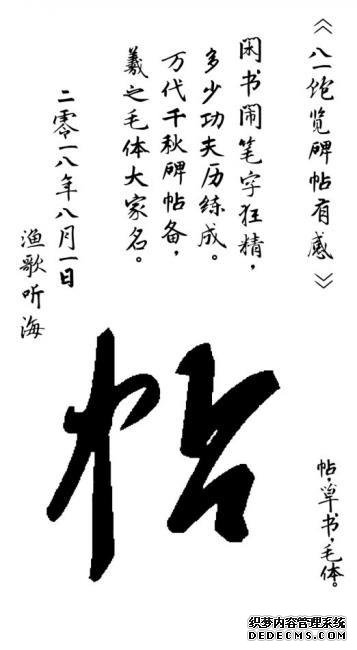 《八一饱览碑帖有感》
闲书闹笔字狂精，
多少功夫历练成。
万代千秋碑帖备，
羲之毛体大家名。
二零一八年八月一日
渔歌听海
帖
帖，草书，毛体。
织梦内容管理系统
DEDECMS.COM